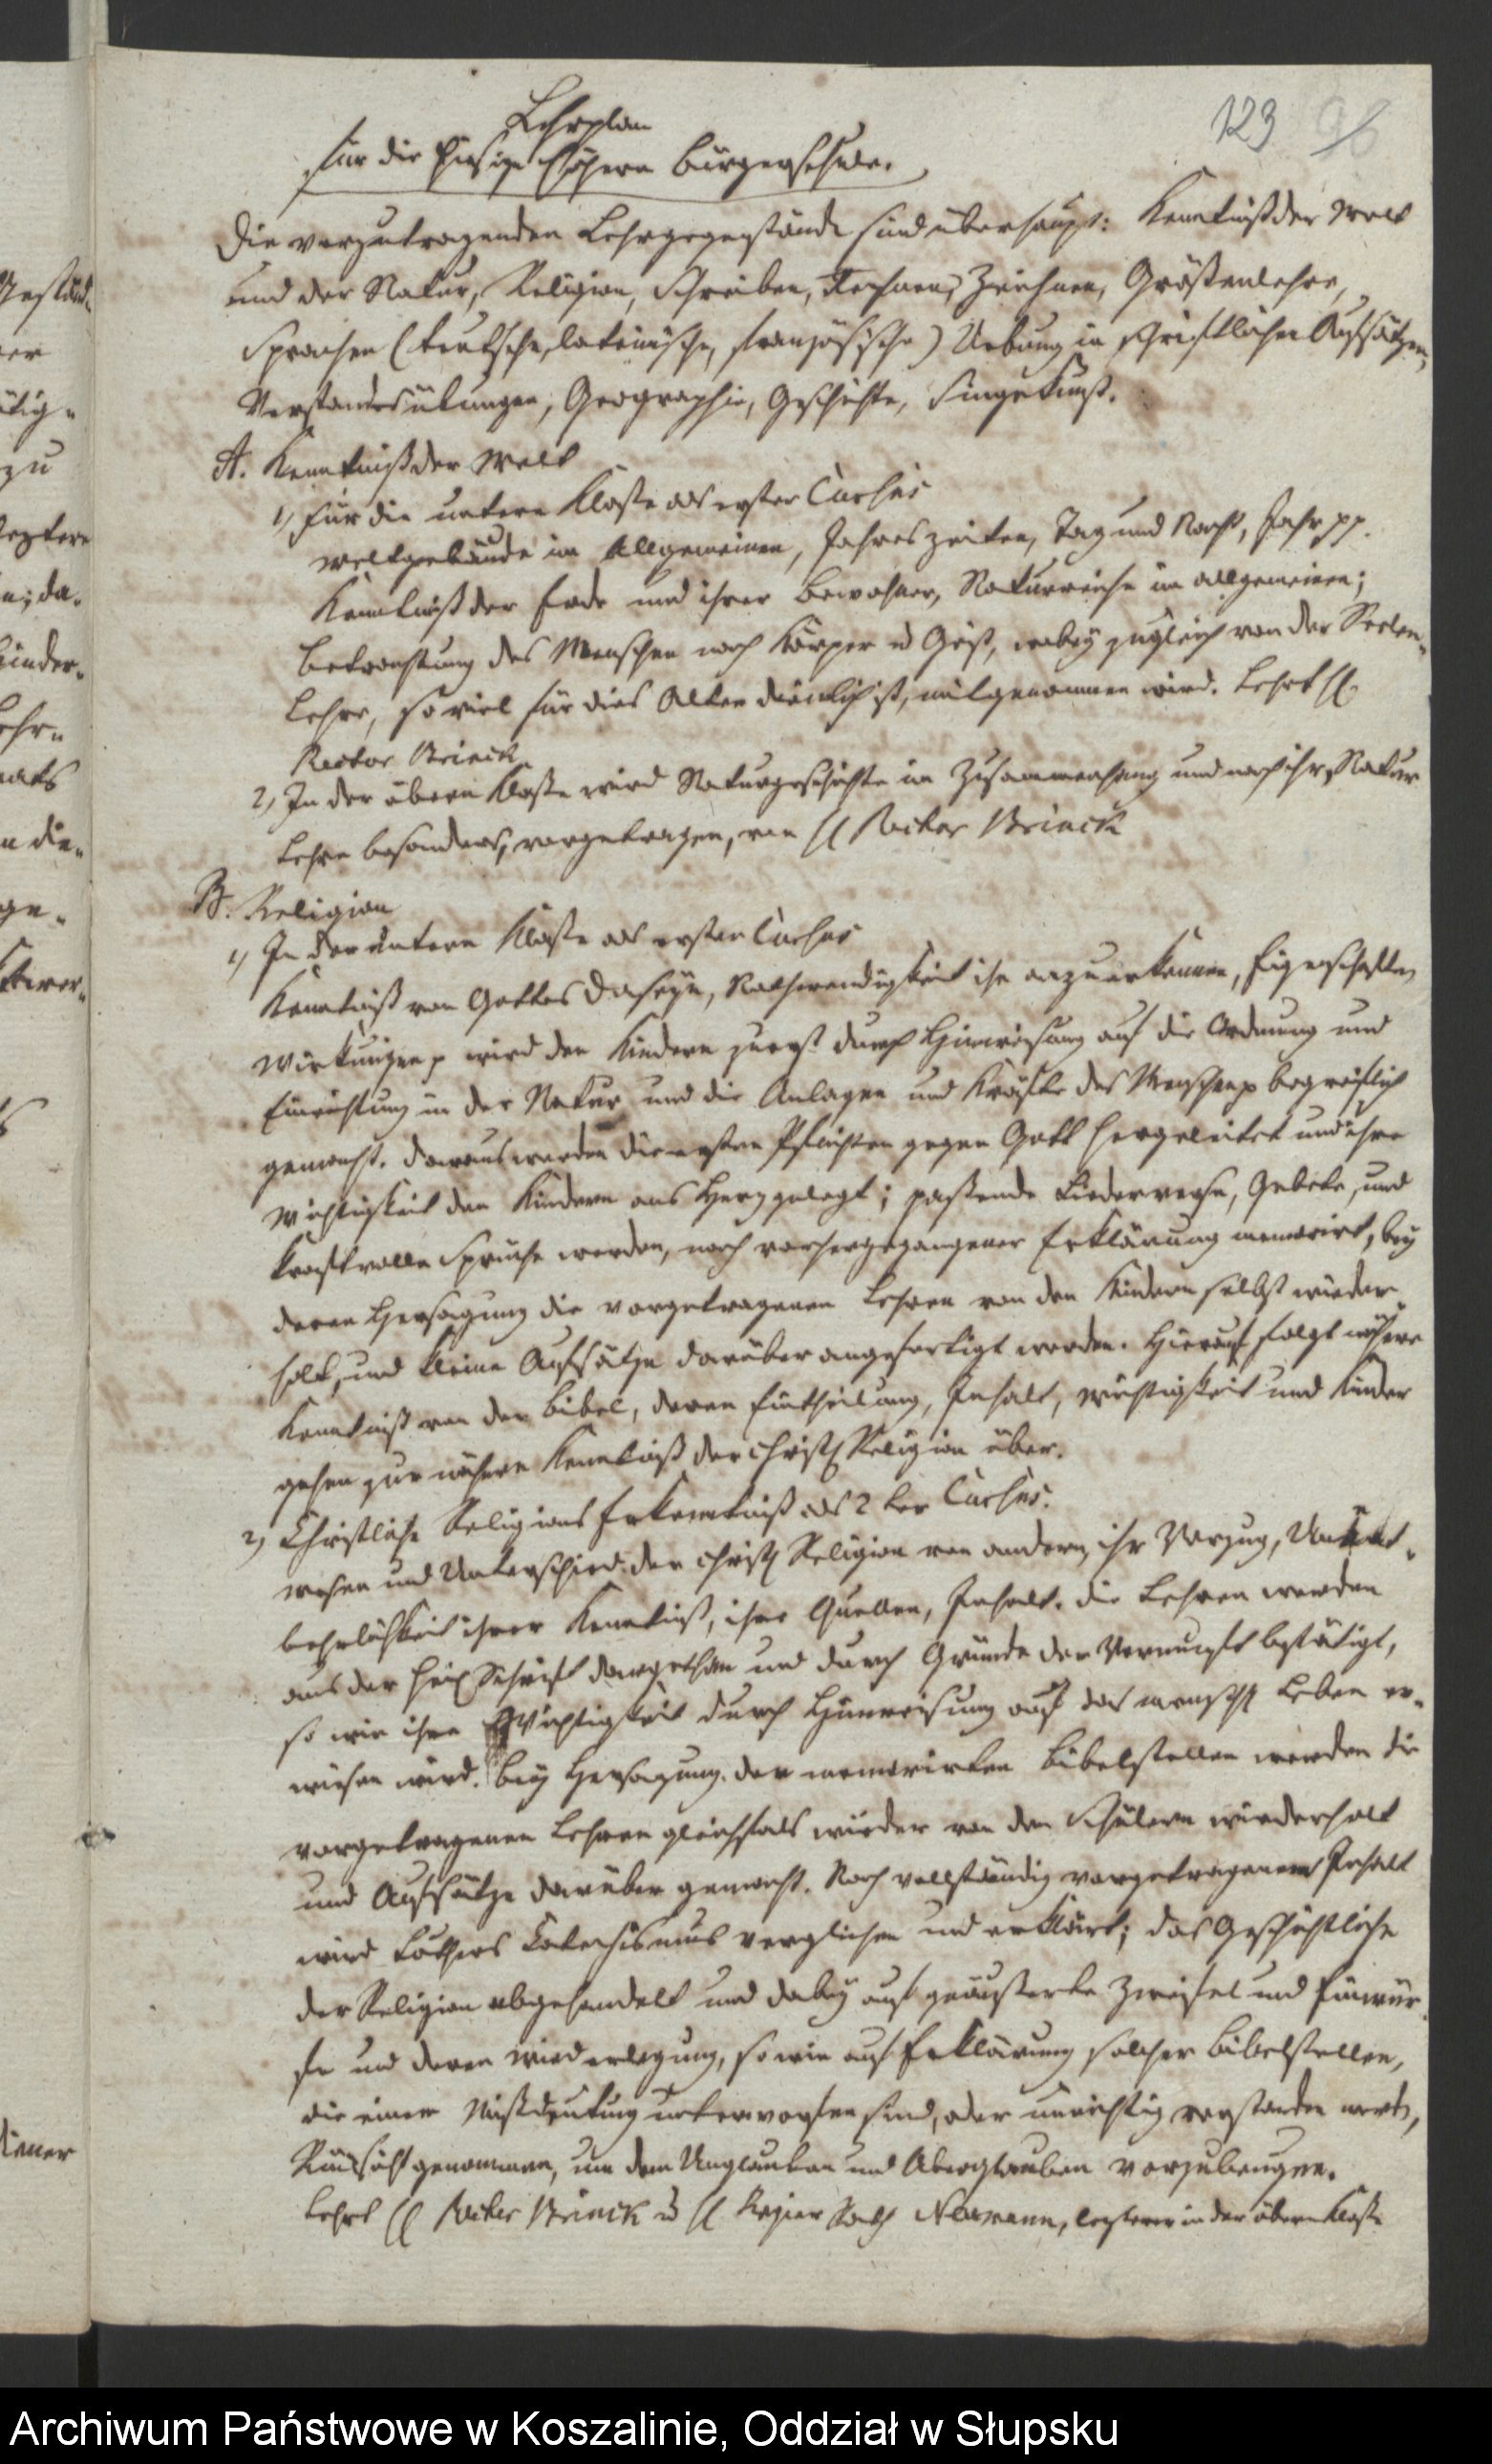 123 96
Lehrplan
für die hiesige höhere Bürgerschule.
Die vorzutragenden Lehrgegenstände sind überhaupt: Kenntniß der Welt
und der Natur, Religion, Schreiben, Rechnen, Zeichnen, Größenlehre,
Sprachen (teutsche, lateinische, französische) Uebung in schriftlichen Aufsätzen,
Verstandesübungen, Geographie, Geschichte, Singekunst.
A. Kenntniß der Welt
1) Für die untere Klaße als erster Cursus
Weltgebäude im Allgemeinen, Jahreszeiten, Tag und Nacht, Jahr pp.
Kenntniß der Erde und ihrer Bewohner, Naturreiche im allgemeinen;
Betrachtung des Menschen nach Körper u Geist, wobey zugleich von der Seelen-
Lehre, so viel für dies Alter dienlich ist, mitgenommen wird. Lehrt H.
Rector Brinck
2) In der obern Klaße wird Naturgeschichte im Zusammenhang und nachher Natur
Lehre besonders, vorgetragen, von H Rector Brinck
B. Religion
1) In der untern Klaße als erster Cursus
Kenntniß von Gottes Daseyn, Nothwendigkeit ihn anzuerkennen, Eigenschaften,
Wirkungen p wird den Kindern zuerst durch Hinweisung auf die Ordnung und
Einrichtung in der Natur und die Anlagen und Kräfte des Menschen p begreiflich
gemacht. Daraus werden die ersten Pflichten gegen Gott hergeleitet und ihre
Wichtigkeit den Kindern ans Herz gelegt; paßende Liederverse, Gebete, und
kraftvolle Sprüche werden, nach vorhergegangener Erklärung memorirt, bey
deren Hersagung die vorgetragenen Lehren von den Kindern selbst wieder-
holt, und kleine Aufsätze darüber angefertigt werden. Hierauf folgt nähere
Kenntniß von der Bibel, deren Eintheilung, Inhalt, Wichtigkeit und Kinder
gehen zur nähern Kenntniß der christl Religion über.
2) Christliche Religions Erkenntniß als 2ter Cursus.
Wesen und Unterschied der christl Religion von andern, ihr Vorzug, Unent-
behrlichkeit ihrer Kenntniß, ihre Quellen, Inhalt. Die Lehren werden
aus der heil Schrift dargethan und durch Gründe der Vernunft bestätigt,
so wie ihre Wichtigkeit durch Hinweisung auf das menschl Leben er-
wiesen wird. Bey Hersagung der memorirten Bibelstellen werden die
vorgetragenen Lehren gleichfals wieder von den Schülern wiederholt
und Aufsätze darüber gemacht. Nach vollständig vorgetragenem Inhalt
wird Luthers Catechismus verglichen und erklärt; das Geschichtliche
der Religion abgehandelt und dabey auf geäußerte Zweifel und Einwür-
fe und deren Wiederlegung, so wie auf Erklärung solcher Bibelstellen,
die einer Mißdeutung unterworfen sind, oder unrichtig verstanden werden,
Rücksicht genommen, um dem Unglauben und Aberglauben vorzubeugen.
Lehrt H Rector Brinck u H Regier Rath Neumann, letzterer in der obern Klaße
Archiwum Państwowe w Koszalinie, Oddział w Słupsku